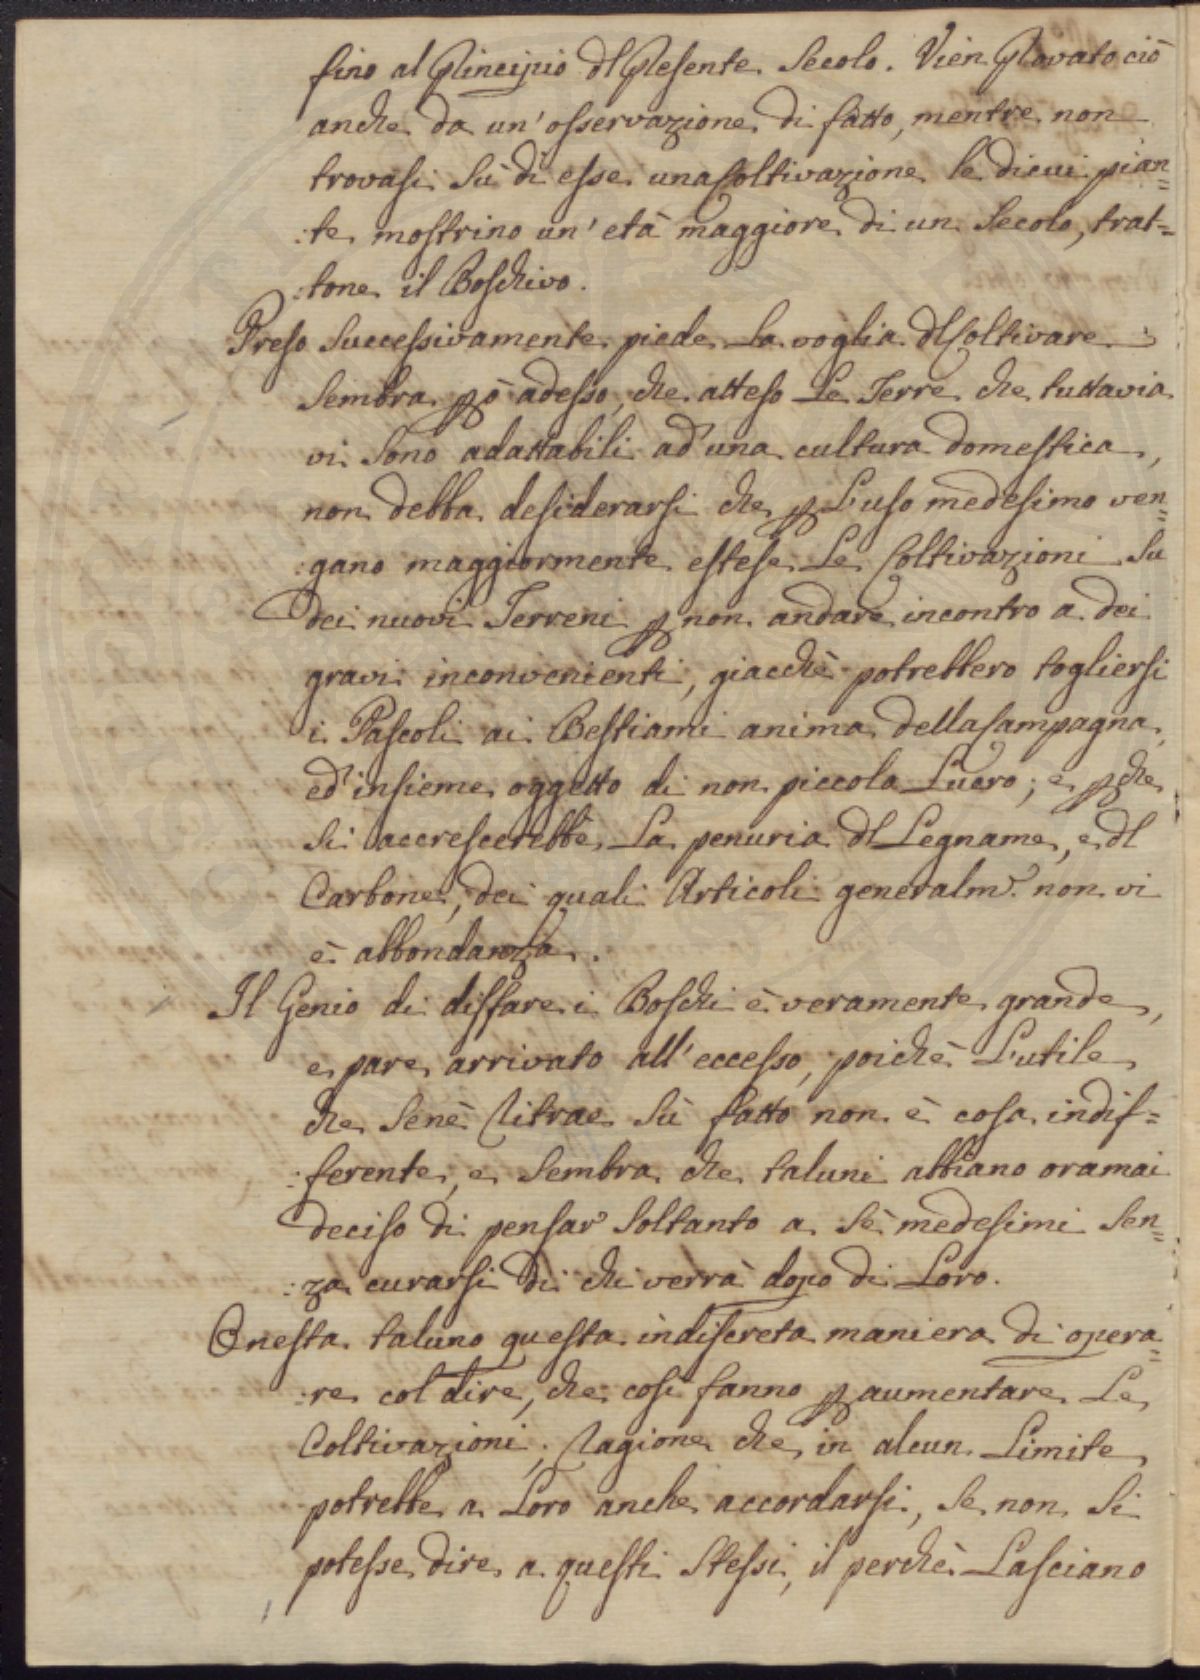 fino al Principio dl Presente Secolo. Vien Provato ciò
anche da un' osservazione di fatto, mentre non
trovasi sù di esse una Coltivazione le di cui pian=
:te mostrino un' età maggiore di un Secolo, trat=
:tone il Boschivo.
Preso successivamente piede La voglia dl Coltivare
Sembra pò adesso, che atteso Le Terre che tuttavia
vi sono adattabili ad una cultura domestica,
non debba desiderarsi che p L'uso medesimo ven=
:gano maggiormente estese Le Coltivazioni Su
dei nuovi Terreni p non andare incontro a dei
gravi inconvenienti, giacchè potrebbero togliersi
i Pascoli ai Bestiami anima della Campagna,
ed insieme oggetto di non piccolo Lucro; e pche
si accrescerebbe La penuria dl Legname, e dl
Carbone, dei quali Articoli generalm.e non vi
è abbondanza.
Il Genio di disfare i Boschi è veramente grande,
e pare arrivato all' eccesso, poichè L'utile
che senè Ritrae sù fatto non è cosa indif=
:ferente, e Sembra che taluni abbiano oramai
deciso di pensar Soltanto a sè medesimi Sen=
:za curarsi di chi verrà dopo di Loro.
Onesta taluno questa indiscreta maniera di opera=
:re col dire, che così fanno p aumentare Le
Coltivazioni; Ragione che in alcun Limite
potrebbe a Loro anche accordarsi, se non si
potesse dire a questi Stessi, il perchè Lasciano